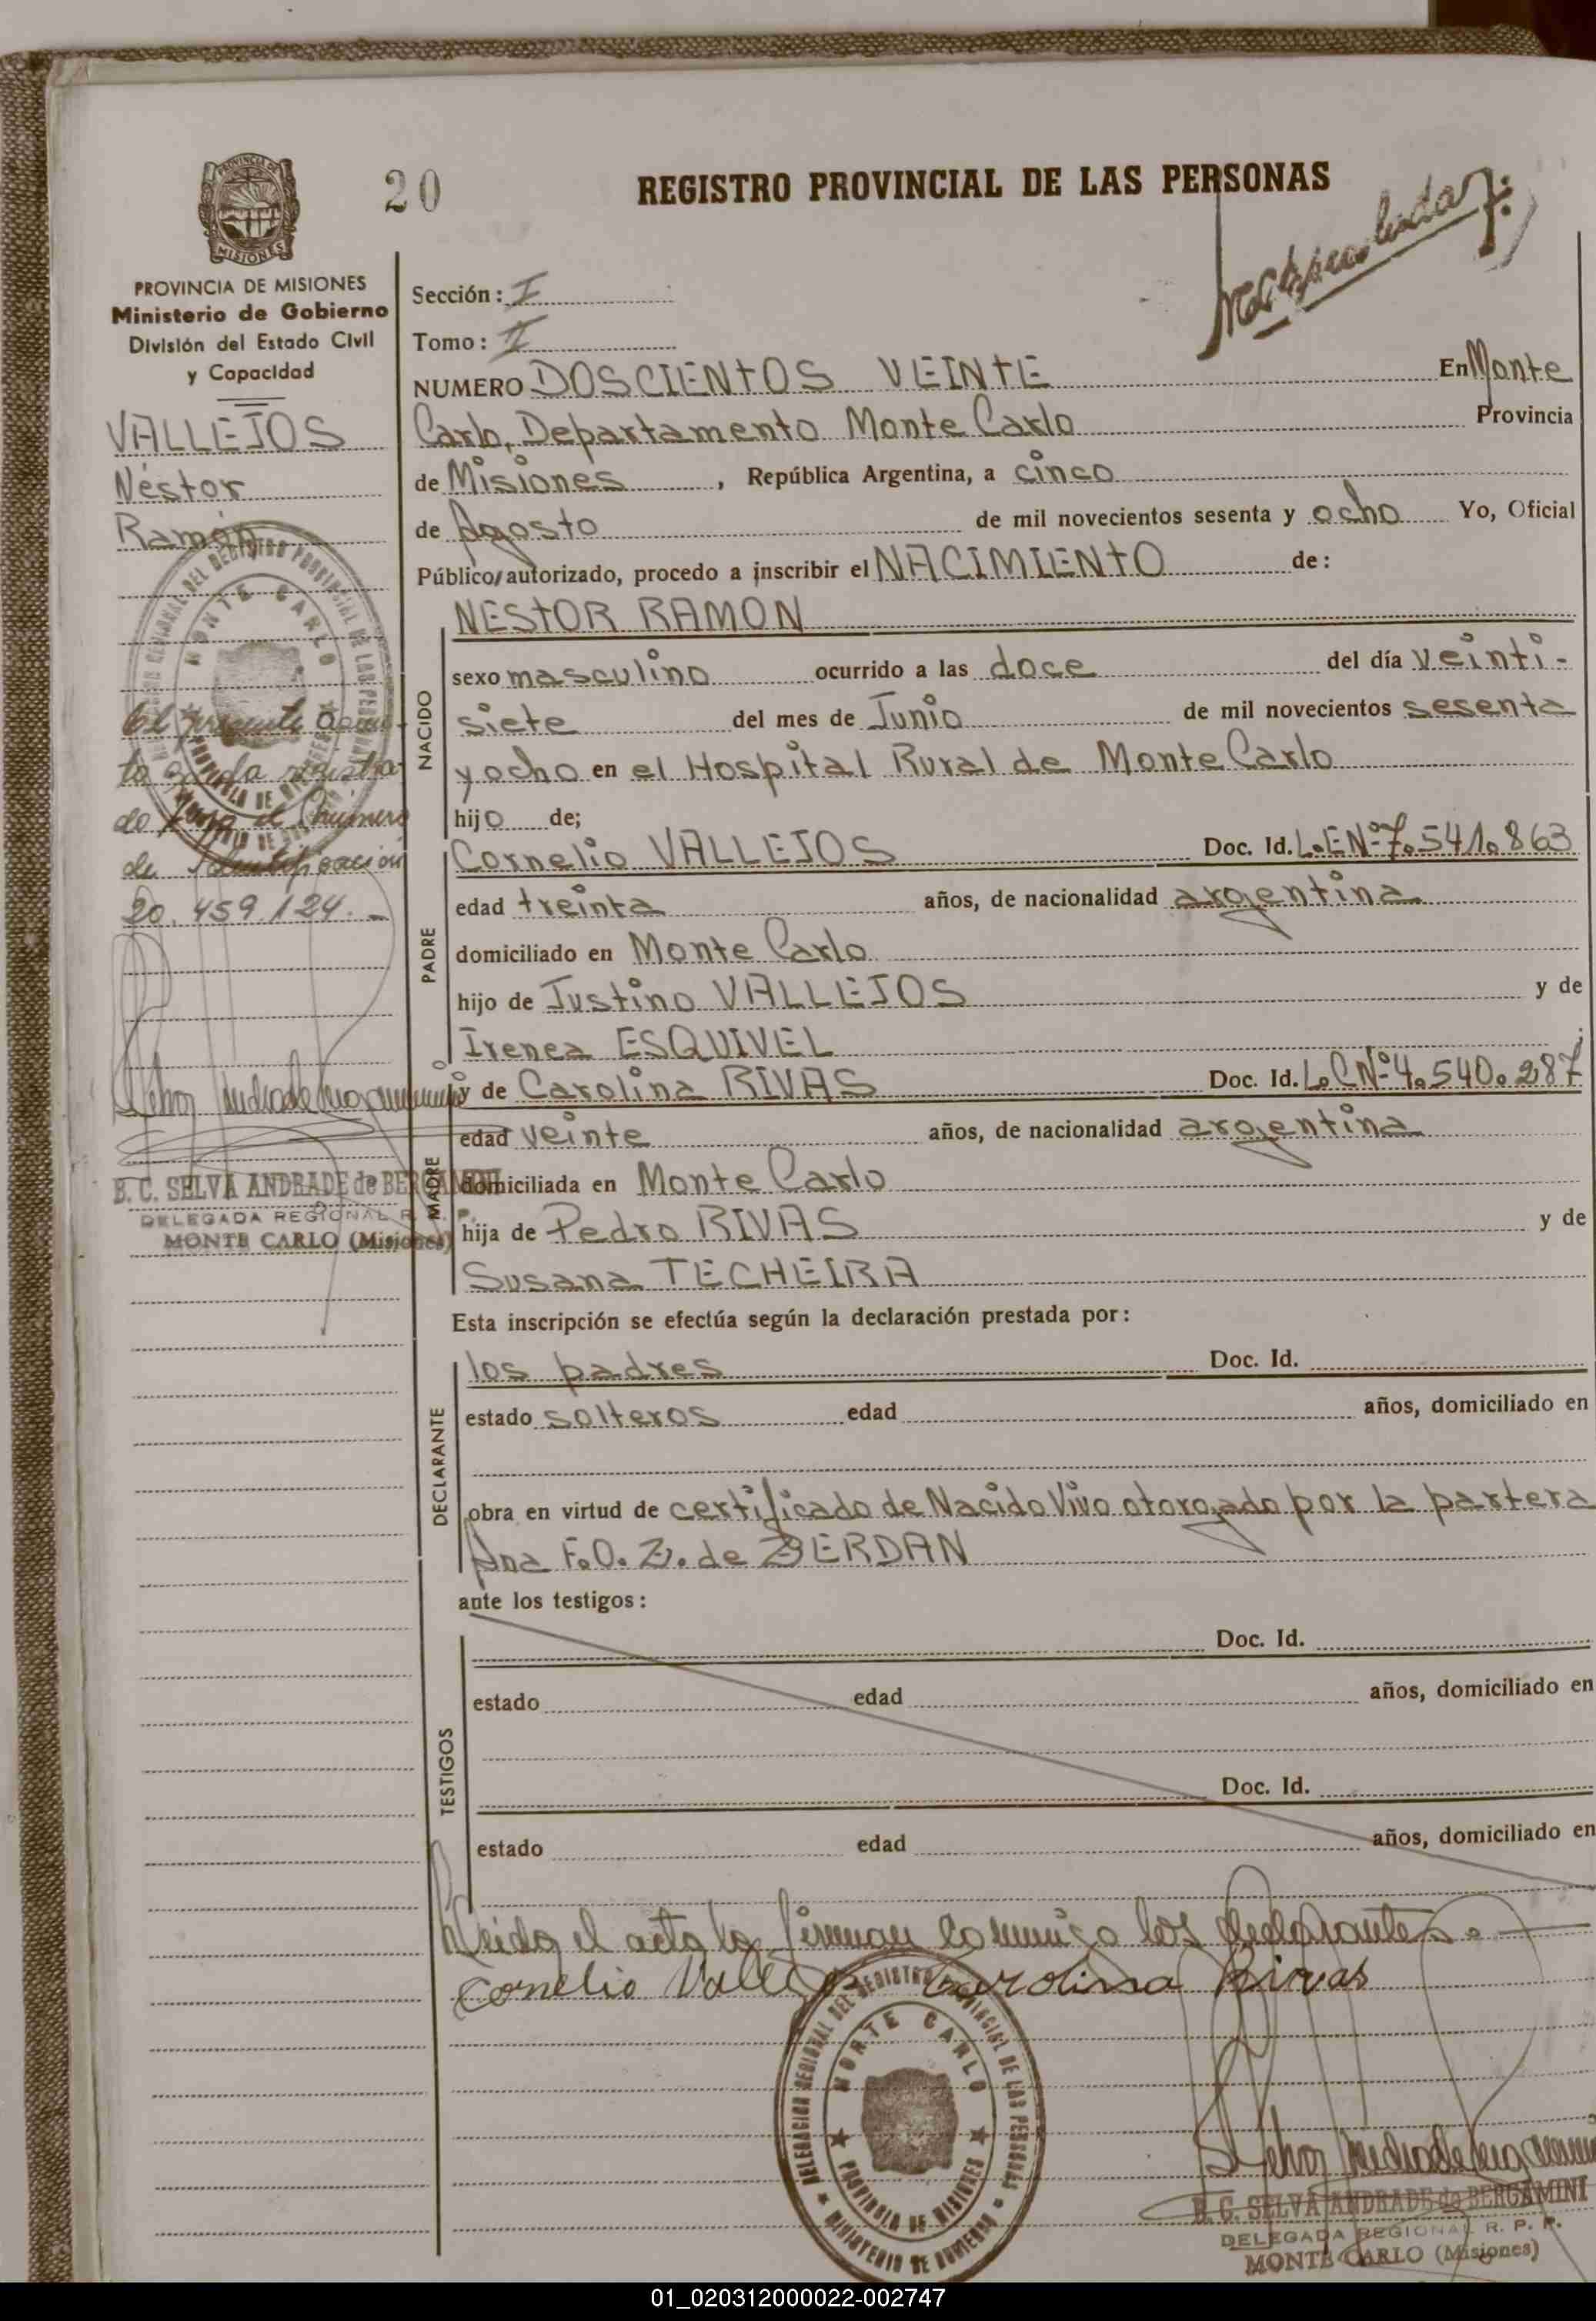 20
REGISTRO PROVINCIAL DE LAS PERSONAS
PROVINCIA DE MISIONES
Ministerio de Gobierno
División del Estado Civil
y Capacidad
VALLEJOS
Néstor
Ramón
El presente
20.459.124.-
B. C. SELVA ANDRADE de BERGAMINI
DELEGADA REGIONAL R. P. P.
MONTE CARLO (Misiones)
Sección: I
Tomo: II
NUMERO DOSCIENTOS VEINTE En Monte
Carlo, Departamento Monte Carlo Provincia
de Misiones, República Argentina, a cinco
de Agosto de mil novecientos sesenta y ocho Yo, Oficial
Público/autorizado, procedo a inscribir el NACIMIENTO de:
NESTOR RAMON
NACIDO
sexo masculino ocurrido a las doce del día veinti-
siete del mes de Junio de mil novecientos sesenta
y ocho en el Hospital Rural de Monte Carlo
hijo de;
PADRE
Cornelio VALLEJOS Doc. Id. L.E.Nº7.541.863
edad treinta años, de nacionalidad argentina
domiciliado en Monte Carlo
hijo de Justino VALLEJOS y de
Irenea ESQUIVEL
MADRE
y de Carolina RIVAS Doc. Id. L.C.Nº4.540.287
edad veinte años, de nacionalidad argentina
domiciliada en Monte Carlo
hija de Pedro RIVAS y de
Susana TECHEIRA
Esta inscripción se efectúa según la declaración prestada por:
DECLARANTE
los padres Doc. Id.
estado solteros edad años, domiciliado en
obra en virtud de certificado de Nacido Vivo otorgado por la partera
Ana F.O.Z. de ZERDAN
ante los testigos:
TESTIGOS
Doc. Id.
estado edad años, domiciliado en
Doc. Id.
estado edad años, domiciliado en
Leida el acta la firman conmigo los declarantes.
Cornelio Vallejos Carolina Rivas
DELEGACION REGIONAL DEL REGISTRO PROVINCIAL DE LAS PERSONAS
MONTE CARLO
PROVINCIA DE MISIONES
MINISTERIO DE GOBIERNO
B. C. SELVA ANDRADE de BERGAMINI
DELEGADA REGIONAL R. P. P.
MONTE CARLO (Misiones)
01_020312000022-002747